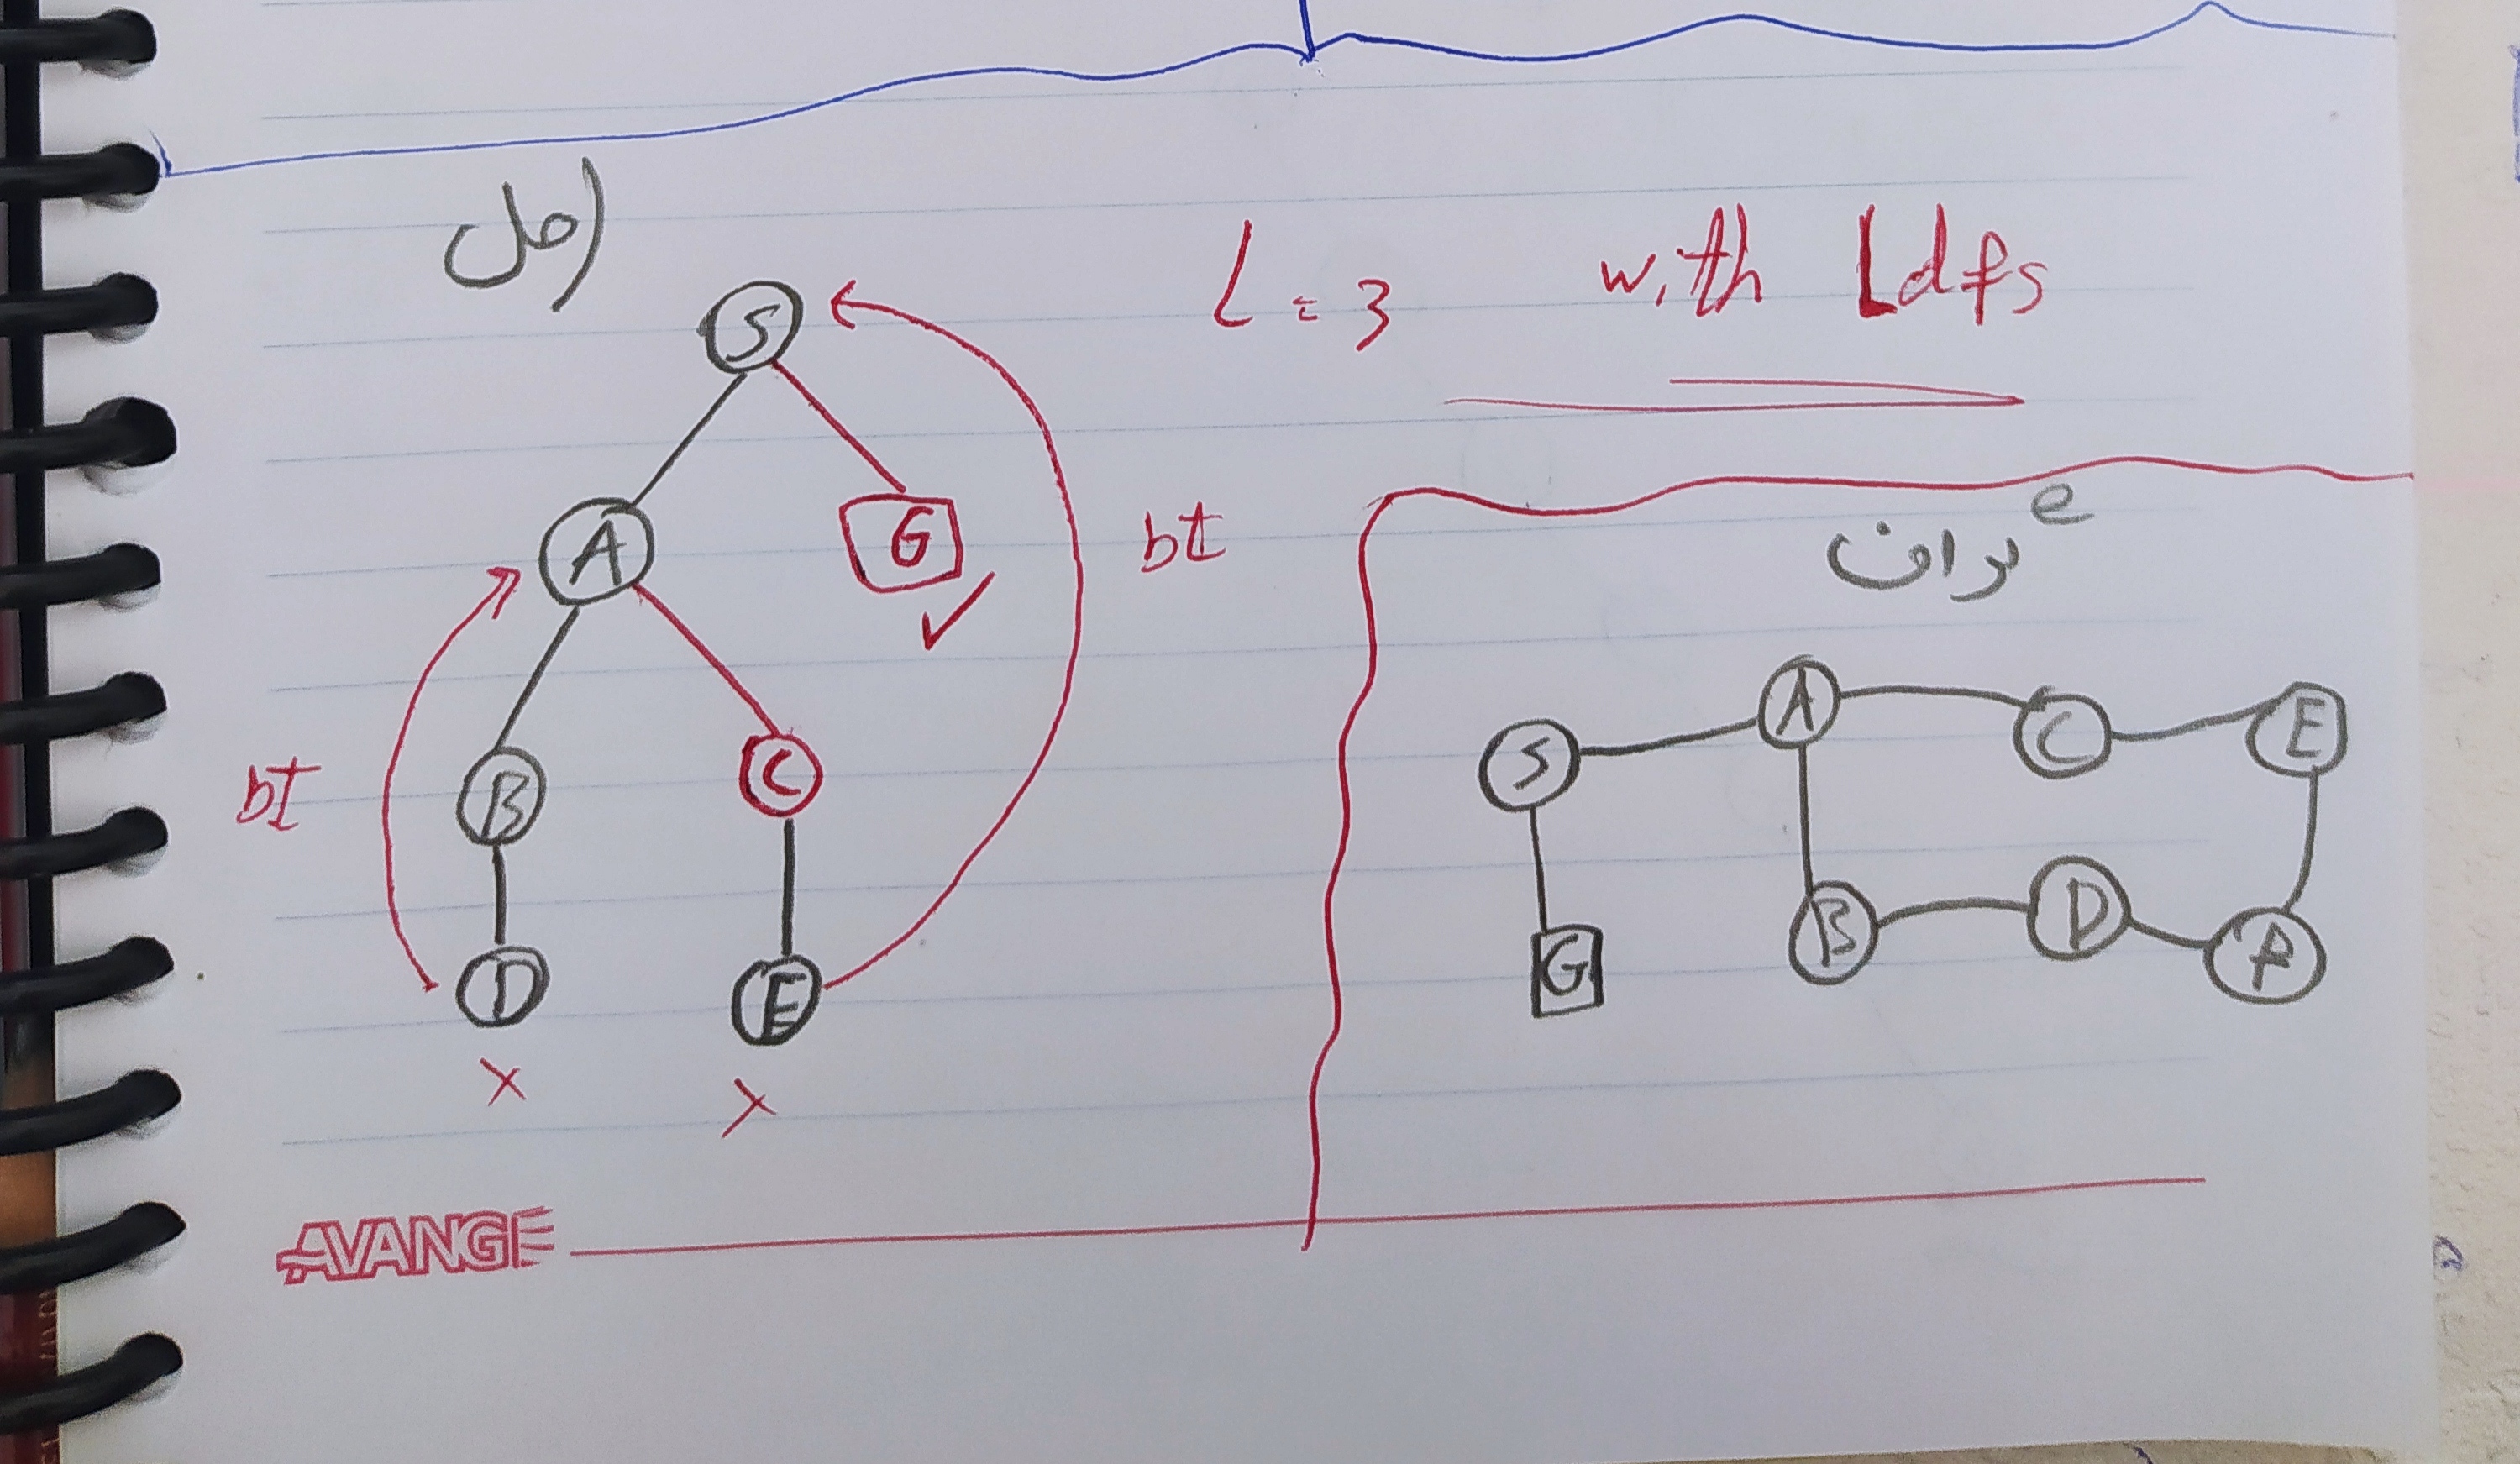 الحل
L = 3 with Ldfs
S
A G
bt
B C
bt
D E
x x
جراف
e
S A C E
G B D P
AVANGE